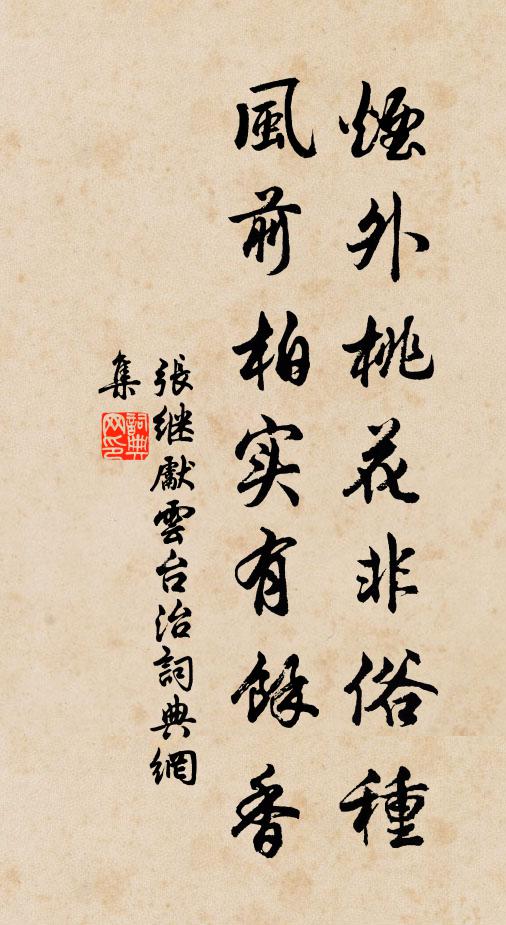 煙外桃花非俗種
風前柏实有餘香
張继獻雲台治詞典網
集
詞典网印